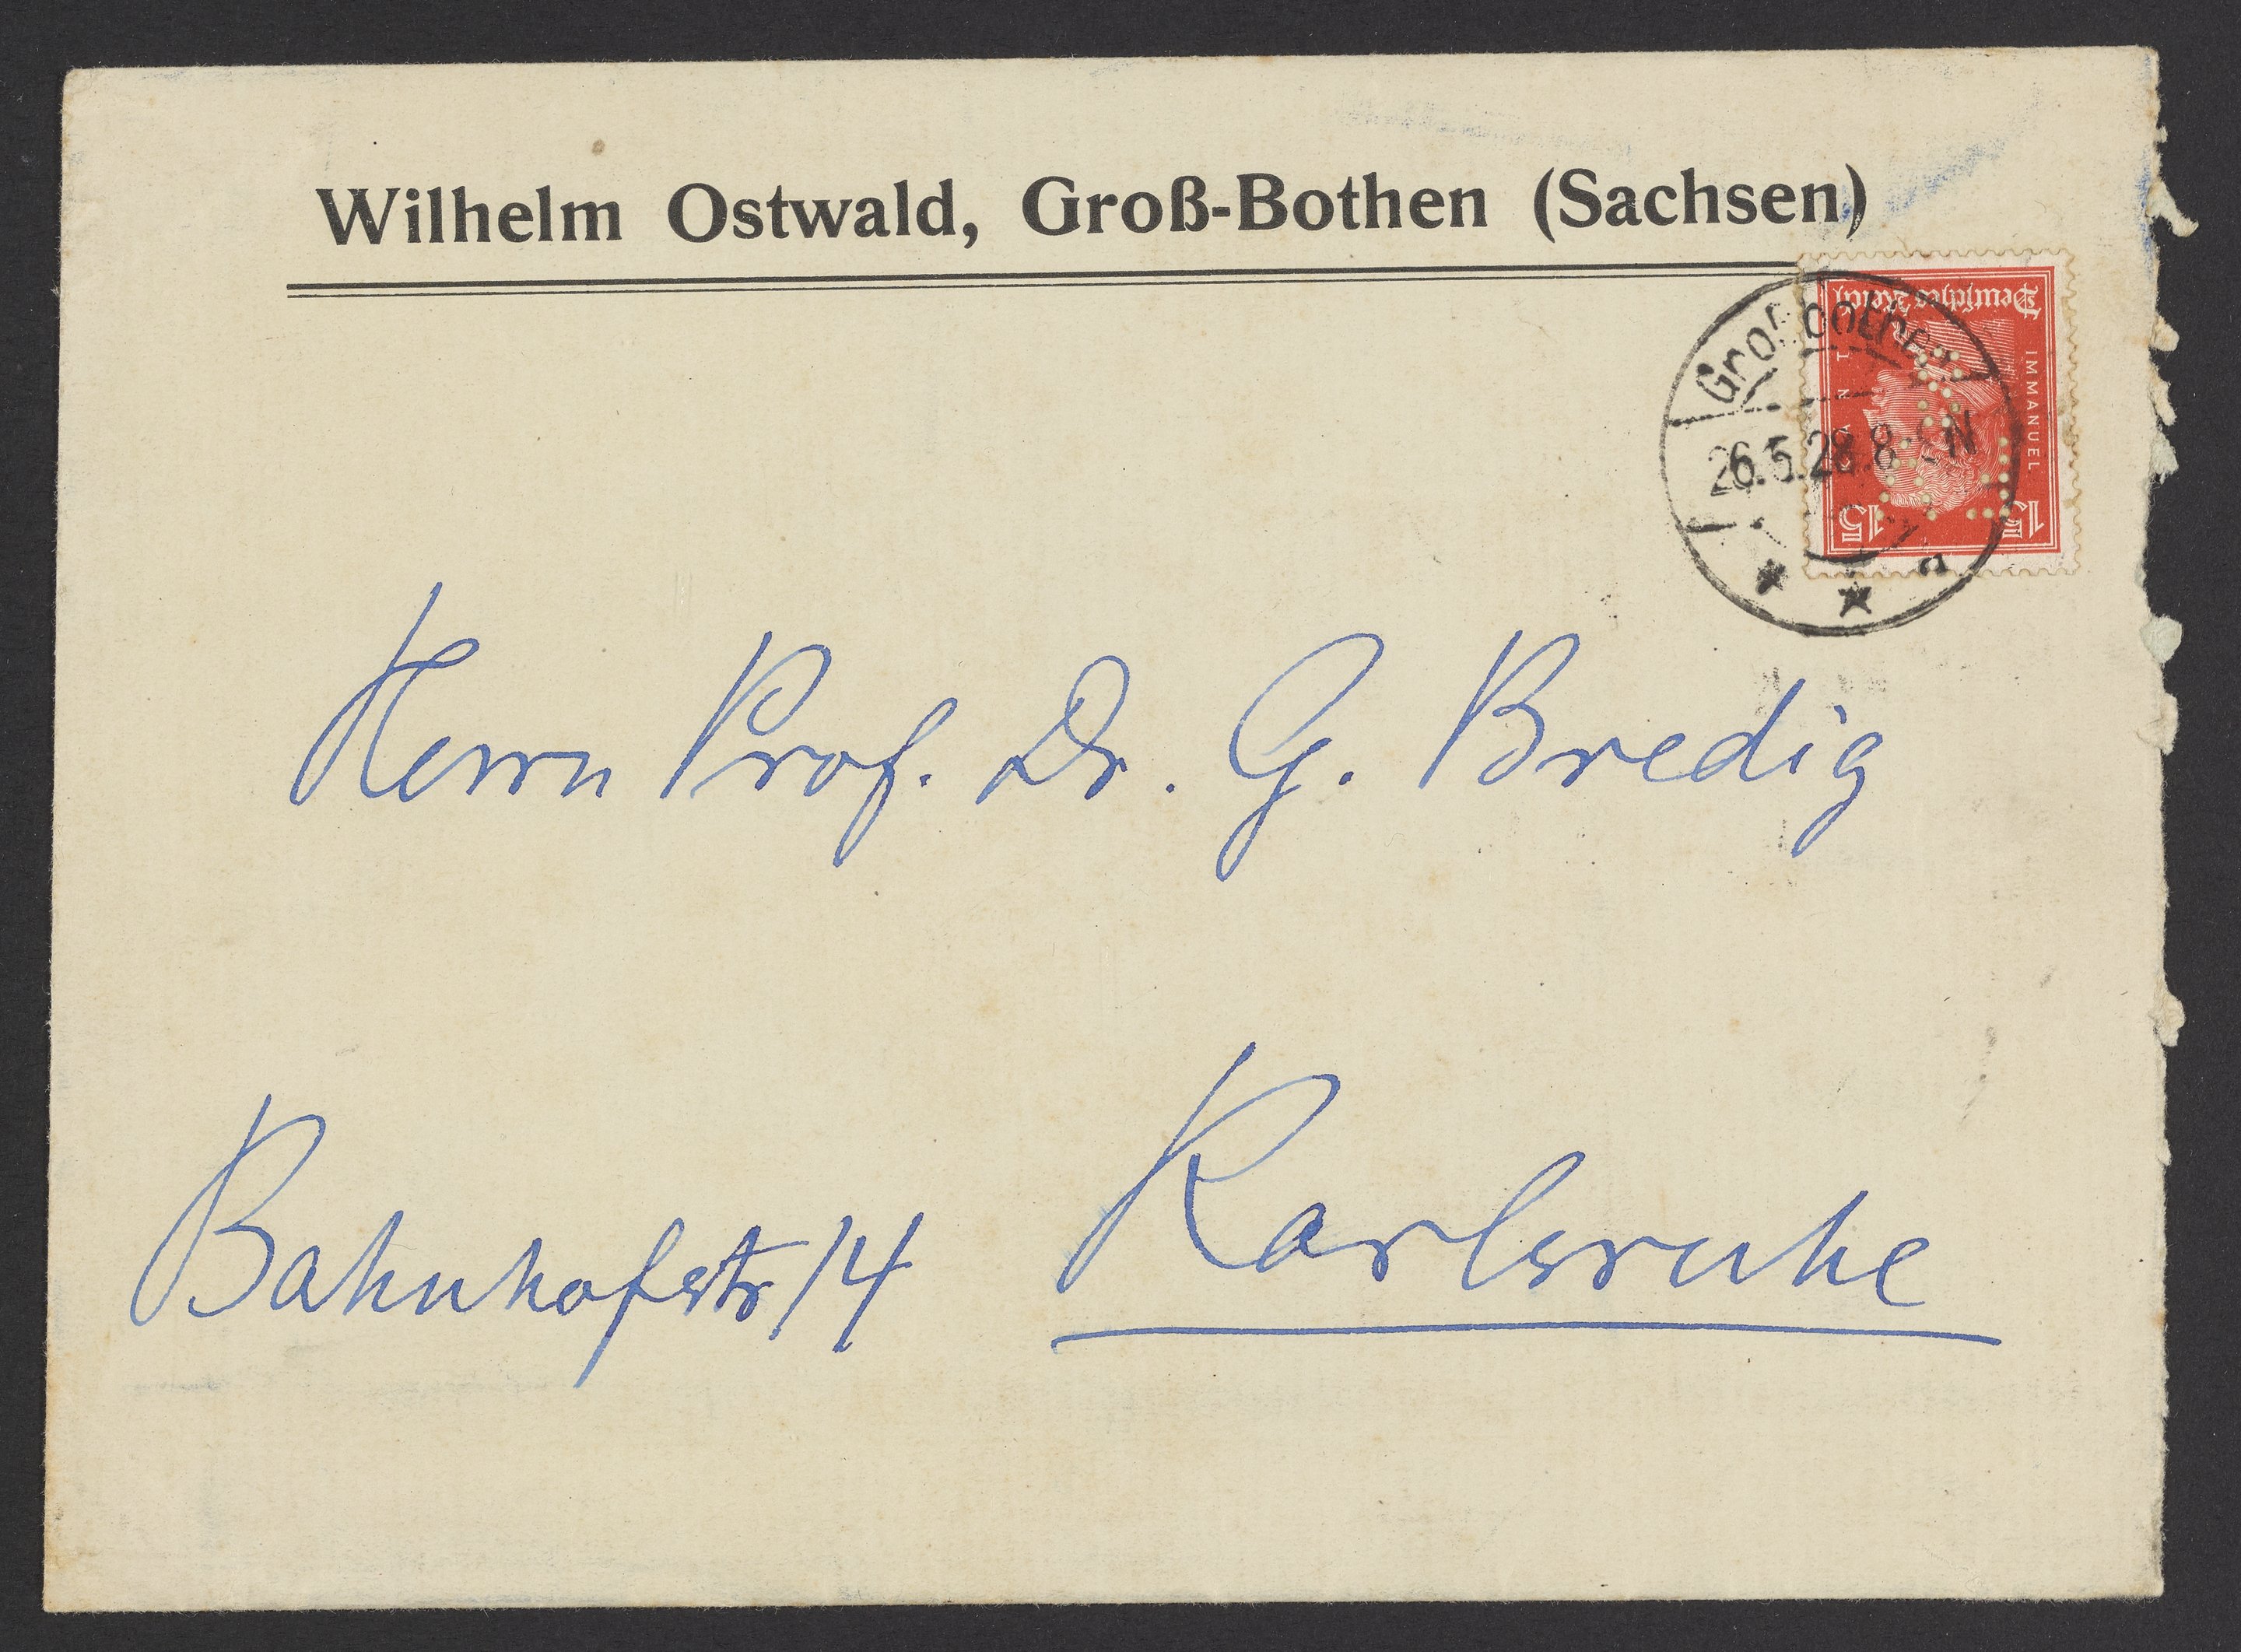 Wilhelm Ostwald, Groß-Bothen (Sachsen)
Deutsches Reich
IMMANUEL
KANT
15 15
Großbothen
26.5.28.8 N
a
Herrn Prof. Dr. G. Bredig
Bahnhofstr 14 Karlsruhe